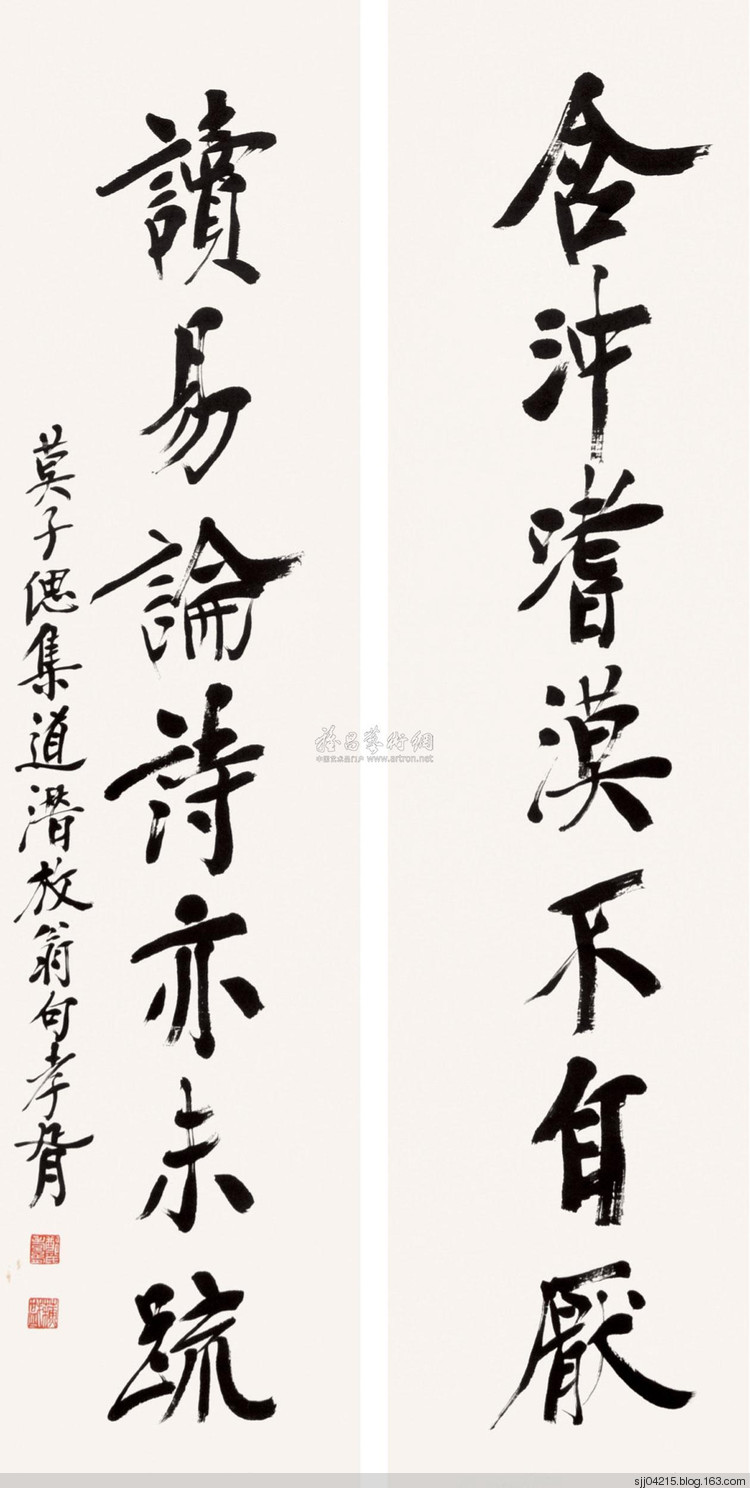 含沖嗜漠不自厭
讀易論詩亦未疏
莫子偲集道潛放翁句孝胥
中国艺术品门户 www.artron.net
sjj04215.blog.163.com